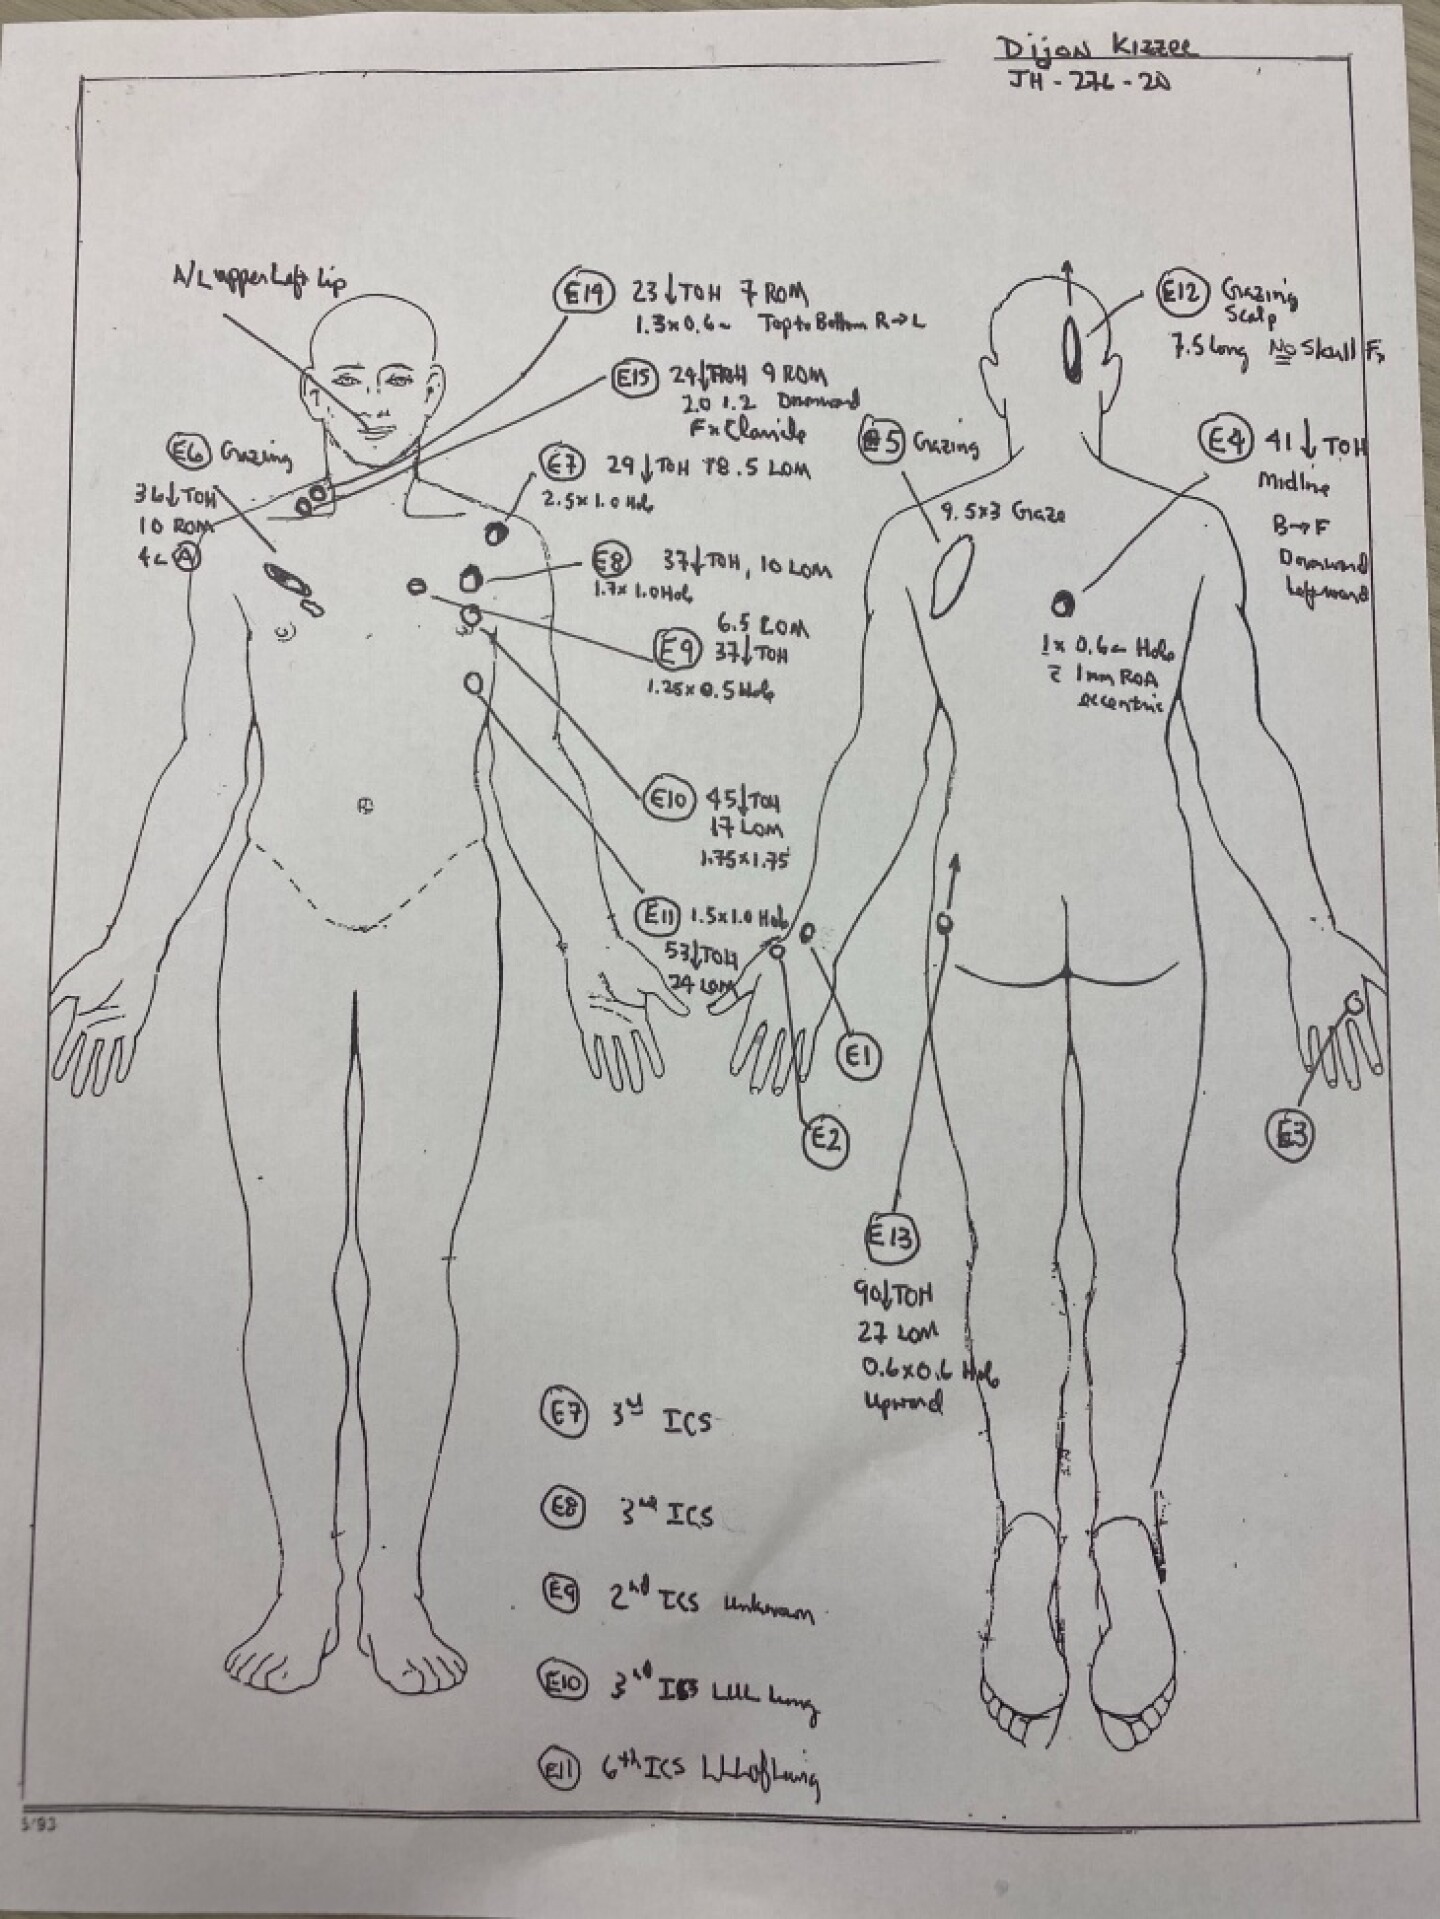 Dijon Kizzee
JH-276-20
A/L upper left lip
E14 23↓TOH 7 ROM
1.3x0.6 Top to Bottom R→L
E15 24↓TOH 9 ROM
2.0 1.2 Downward
Fx Clavicle
E6 Grazing
36↓TOH
10 ROM
A
E7 29↓TOH 18.5 LOM
2.5x1.0 Hole
E8 37↓TOH, 10 LOM
1.7x1.0 Hole
E9 6.5 LOM
37↓TOH
1.25x0.5 Hole
E10 45↓TOH
17 LOM
1.75x1.75
E11 1.5x1.0 Hole
53↓TOH
24 LOM
E12 Grazing
Scalp
7.5 long No Skull Fx
#5 Grazing
9.5x3 Graze
E4 41↓TOH
Midline
B→F
Downward
Leftward
1x0.6 Hole
1mm ROA
eccentric
E1
E2
E3
E13
90↓TOH
27 LOM
0.6x0.6 Hole
Upward
E7 3rd ICS
E8 3rd ICS
E9 2nd ICS unknown
E10 3rd ICS LUL Lung
E11 6th ICS LLL of Lung
5/93